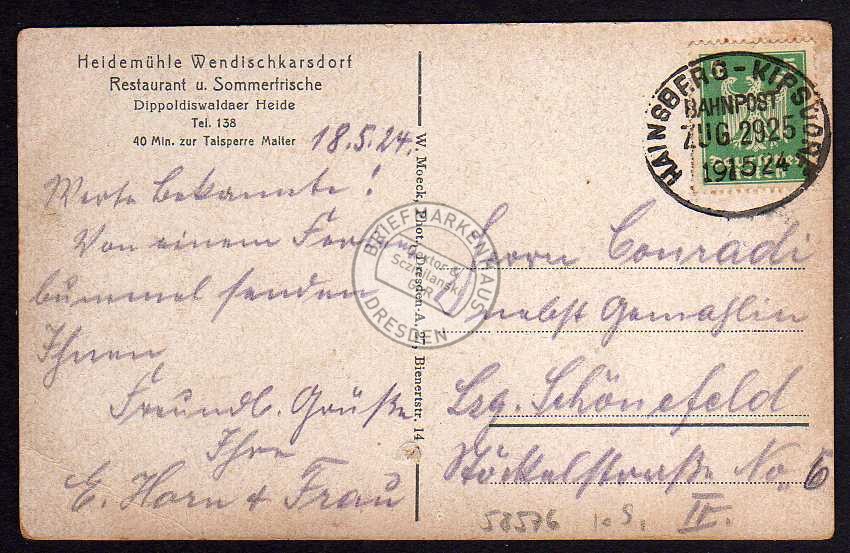 Heidemühle Wendischkarsdorf
Restaurant u. Sommerfrische
Dippoldiswaldaer Heide
Tel. 138
40 Min. zur Talsperre Malter
18.5.24.
Werte Bekannte!
Von einem
bummel senden
Ihnen
Freundl. Grüße
Ihre
E. Horn & Frau
W. Moeck, Phot., Dresden-A. 27, Bienertstr. 14
HAINSBERG-KIPSDORF
BAHNPOST
ZUG 2925
19.5.24
Herrn Conradi
nebst Gemahlin
Lzg. Schönefeld
Stöckelstraße No. 6
II.
58576 I.S.
BRIEFMARKENHAUS
DRESDEN
Sczepilanski
GbR